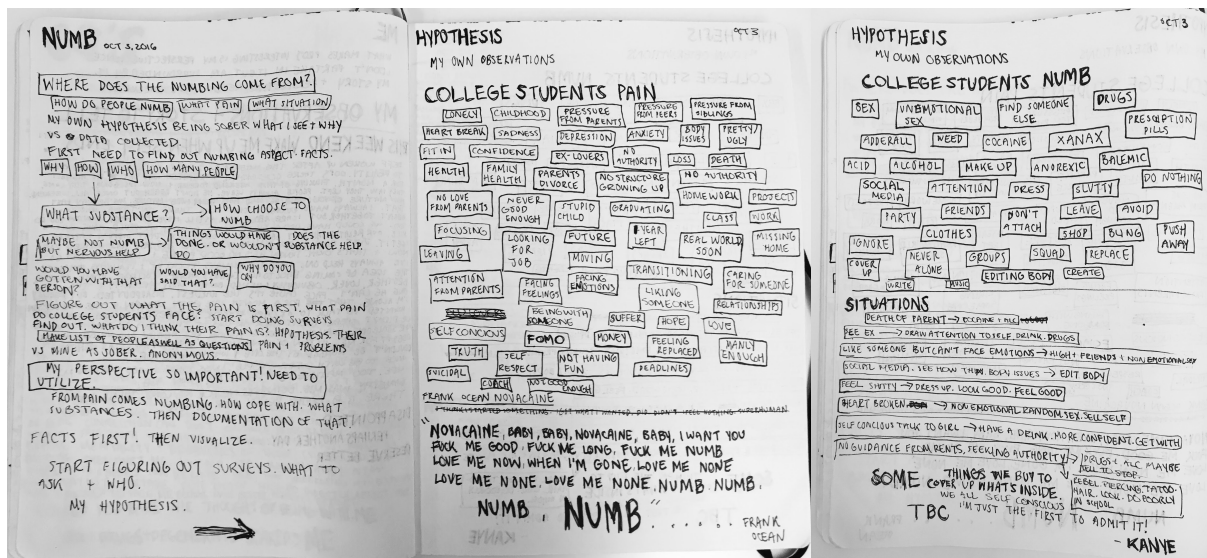 NUMB OCT 3, 2016
WHERE DOES THE NUMBING COME FROM?
HOW DO PEOPLE NUMB WHAT PAIN WHAT SITUATION
MY OWN HYPOTHESIS BEING SOBER WHAT I SEE + WHY
VS DATA COLLECTED.
FIRST NEED TO FIND OUT NUMBING ASPECT. FACTS.
WHY HOW WHO HOW MANY PEOPLE
WHAT SUBSTANCE? → HOW CHOOSE TO
NUMB
MAYBE NOT NUMB → THINGS WOULD HAVE DOES THE
BUT NERVOUS HELP DONE. OR WOULDN'T SUBSTANCE HELP.
DO
WOULD YOU HAVE WOULD YOU HAVE WHY DO YOU
GOTTEN WITH THAT SAID THAT? CRY
PERSON?
FIGURE OUT WHAT THE PAIN IS FIRST. WHAT PAIN
DO COLLEGE STUDENTS FACE? START DOING SURVEYS
FIND OUT. WHAT DO I THINK THEIR PAIN IS? HYPOTHESIS. THEIR
MAKE LIST OF PEOPLE AS WELL AS QUESTIONS PAIN + PROBLEMS
VS MINE AS SOBER. ANONYMOUS.
MY PERSPECTIVE SO IMPORTANT! NEED TO
UTILIZE.
FROM PAIN COMES NUMBING. HOW COPE WITH. WHAT
SUBSTANCES. THEN DOCUMENTATION OF THAT.
FACTS FIRST! THEN VISUALIZE.
START FIGURING OUT SURVEYS. WHAT TO
ASK + WHO.
MY HYPOTHESIS.
HYPOTHESIS OCT 3
MY OWN OBSERVATIONS
COLLEGE STUDENTS PAIN
LONELY CHILDHOOD PRESSURE FROM PARENTS PRESSURE FROM PEERS PRESSURE FROM SIBLINGS
HEART BREAK SADNESS DEPRESSION ANXIETY BODY ISSUES PRETTY/UGLY
FIT IN CONFIDENCE EX-LOVERS NO AUTHORITY LOSS DEATH
HEALTH FAMILY HEALTH PARENTS DIVORCE NO STRUCTURE GROWING UP NO AUTHORITY
NO LOVE FROM PARENTS NEVER GOOD ENOUGH STUPID CHILD GRADUATING HOMEWORK PROJECTS
CLASS WORK
FOCUSING LOOKING FOR JOB FUTURE 1 YEAR LEFT REAL WORLD SOON MISSING HOME
LEAVING MOVING
ATTENTION FROM PARENTS FACING FEELINGS FACING EMOTIONS TRANSITIONING CARING FOR SOMEONE
BEING WITH SOMEONE LIKING SOMEONE RELATIONSHIPS
SELF CONCIOUS FOMO SUFFER HOPE LOVE
MONEY FEELING REPLACED MANLY ENOUGH
TRUTH SELF RESPECT NOT HAVING FUN DEADLINES
SUICIDAL COACH NOT GOOD ENOUGH
FRANK OCEAN NOVACAINE
I THINK I STARTED SOMETHING I GOT WHAT I WANTED. DID DIDN'T FEEL NOTHING SUPERHUMAN
"NOVACAINE, BABY, BABY, NOVACAINE, BABY, I WANT YOU
FUCK ME GOOD, FUCK ME LONG, FUCK ME NUMB
LOVE ME NOW, WHEN I'M GONE, LOVE ME NONE
LOVE ME NONE, LOVE ME NONE, NUMB. NUMB.
NUMB. NUMB ....."
FRANK
OCEAN
HYPOTHESIS OCT 3
MY OWN OBSERVATIONS
COLLEGE STUDENTS NUMB
SEX UNEMOTIONAL SEX FIND SOMEONE ELSE DRUGS
PRESCIPTION PILLS
ADDERALL NEED COCAINE XANAX
ACID ALCOHOL MAKE UP ANOREXIC BALEMIC DO NOTHING
SOCIAL MEDIA ATTENTION DRESS SLUTTY
PARTY FRIENDS DON'T ATTACH LEAVE AVOID
CLOTHES SHOP BUING PUSH AWAY
IGNORE NEVER ALONE GROUPS SQUAD REPLACE
COVER UP EDITING BODY CREATE
WRITE MUSIC
SITUATIONS
DEATH OF PARENT → COCAINE + ALC
SEE EX → DRAW ATTENTION TO SELF. DRINK. DRUGS
LIKE SOMEONE BUT CAN'T FACE EMOTIONS → HIGH + FRIENDS + NON EMOTIONAL SEX
SOCIAL MEDIA. SEE HOW THIN. BODY ISSUES → EDIT BODY
FEEL SHITTY → DRESS UP. LOOK GOOD. FEEL GOOD
HEART BROKEN → NON EMOTIONAL RANDOM SEX. SELL SELF
SELF CONCIOUS TALK TO GIRL → HAVE A DRINK. MORE CONFIDENT. GET WITH
NO GUIDANCE FROM RENTS, SEEKING AUTHORITY → DRUGS + ALC MAYBE
TELL TO STOP.
REBEL. PIERCING, TATOO.
HAIR. LOOK. DO POORLY
IN SCHOOL
SOME THINGS WE BUY TO
COVER UP WHAT'S INSIDE.
WE ALL SELF CONSCIOUS
I'M JUST THE FIRST TO ADMIT IT!
TBC
- KANYE